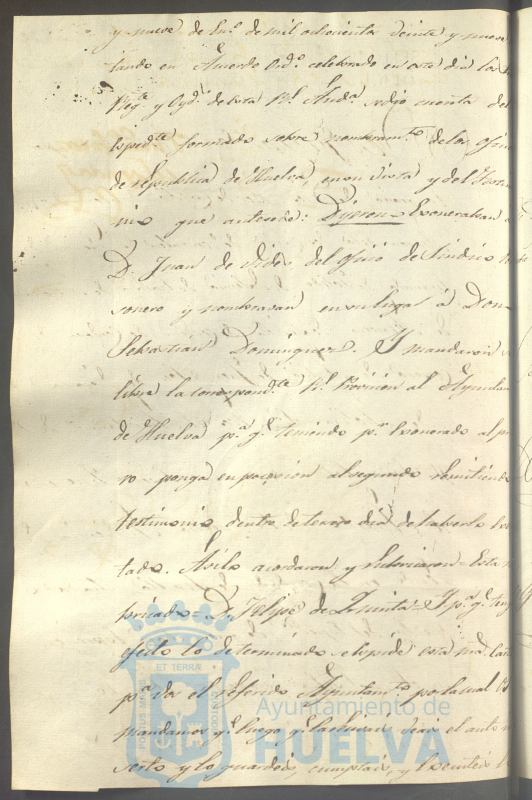 y nueve de En.º de mil ochocientos veinte y nueve
tando en Acuerdo Ord.º celebrado en este dia los
Reg.te y Oyd.s de esta R.l Aud.a se dió cuenta del
Exped.te formado sobre nombram.to de los ofici
de república de Huelva, en su vista y del
nio que antecede: Dijeron Exoneraban a
D. Juan de del ofició de Sindico
sonero y nombravan en su lugar á Don
Sebastián Dominguez. Y mandaron
libre la correspond.te R.l Provicion al Ayuntam
de Huelva p.a q.e teniendo p.r Exonerado al pri
ro ponga en posecion al segundo remitiendo
testimonio dentro de tercero dia de haberlo
tado. Asilo acordaron y rubricaron = Esta
bricado = D. Felipe de Quinta = Y p.a q.e teng
efecto lo determinado se expide esta ntra. Carta
p.a vos el referido Ayuntam.to por la cual Os
mandamos q.e luego q.e la recivais veais el auto
serto y lo guardeis, cumplais, y Executeis
ET TERRÆ
PORTUS MARIS
CUSTODIA
Ayuntamiento de
HUELVA